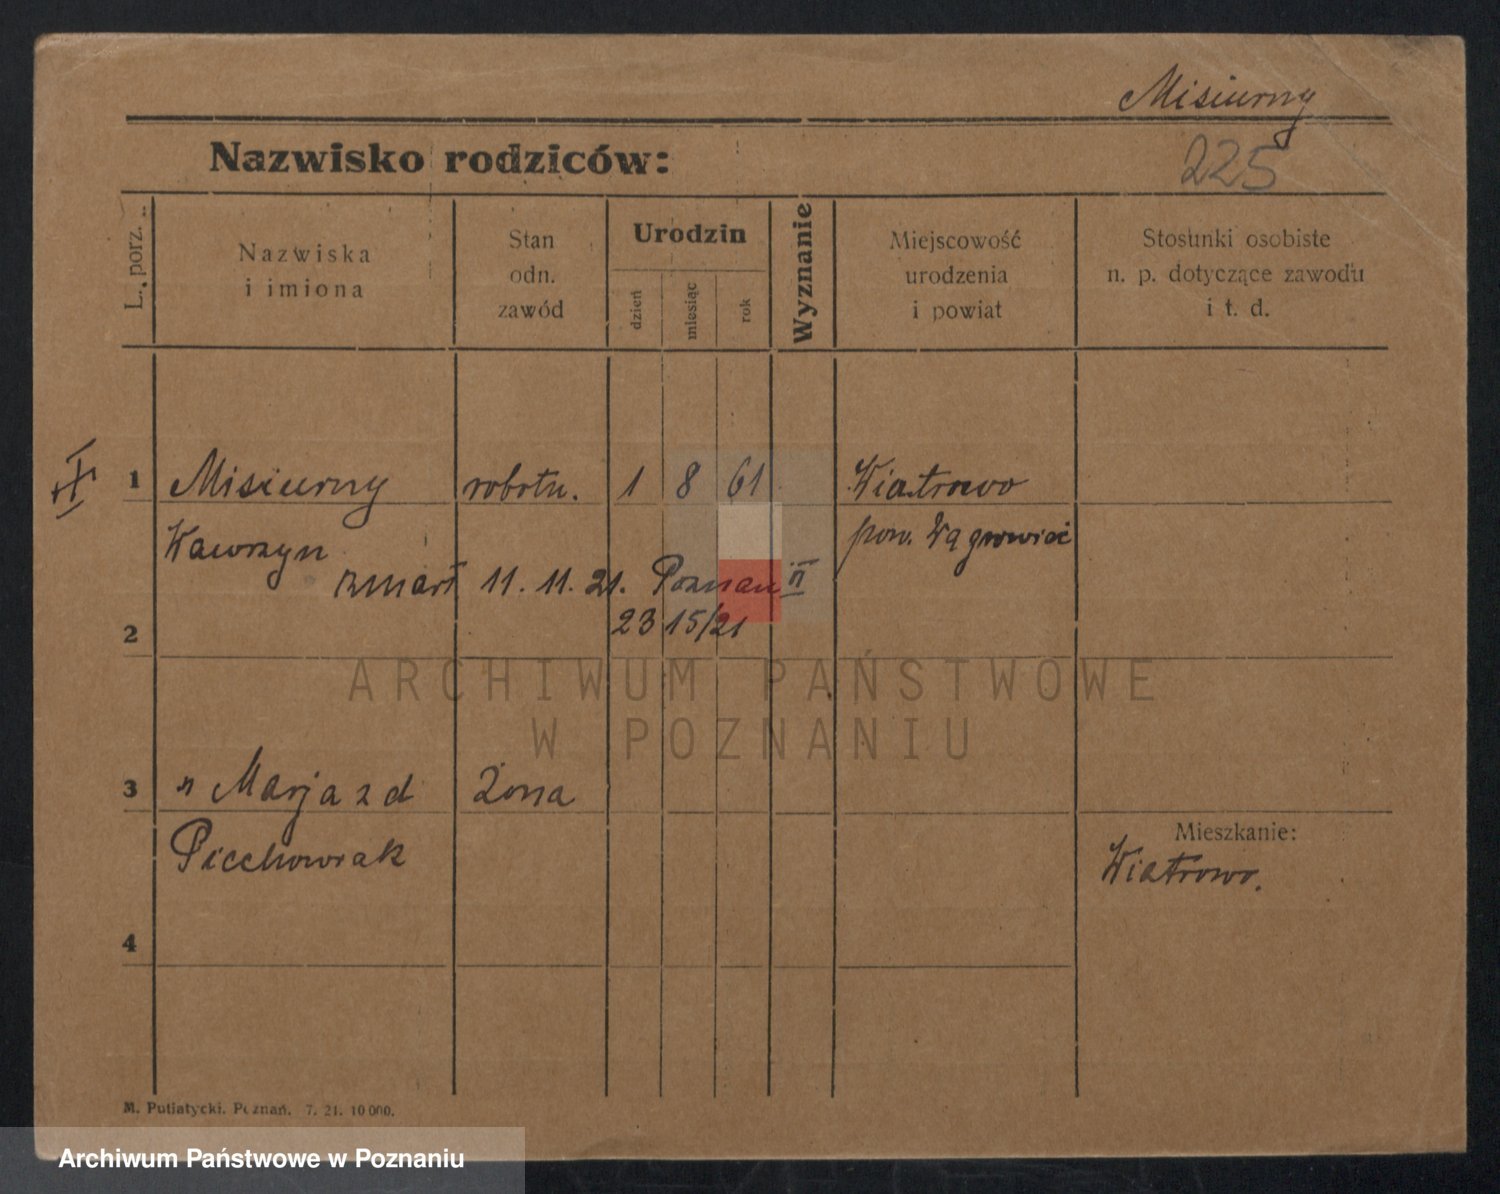 Misiurny
Nazwisko rodziców:
225
L. porz.
Nazwiska
i imiona
Stan
odn.
zawód
Urodzin
dzień
miesiąc
rok
Wyznanie
Miejscowość
urodzenia
i powiat
Stosunki osobiste
n. p. dotyczące zawodu
i t. d.
1 Misiurny robotn. 1 8 61 Wiatrowo
Wawrzyn pow. Wągrowiec
zmarł 11. 11. 21. Poznań II
2 23 15/21
ARCHIWUM PAŃSTWOWE
W POZNANIU
3 " Marja z d Żona
Piechowiak
Mieszkanie:
Wiatrowo.
4
M. Putiatycki. Poznań. 7. 21. 10 000.
Archiwum Państwowe w Poznaniu